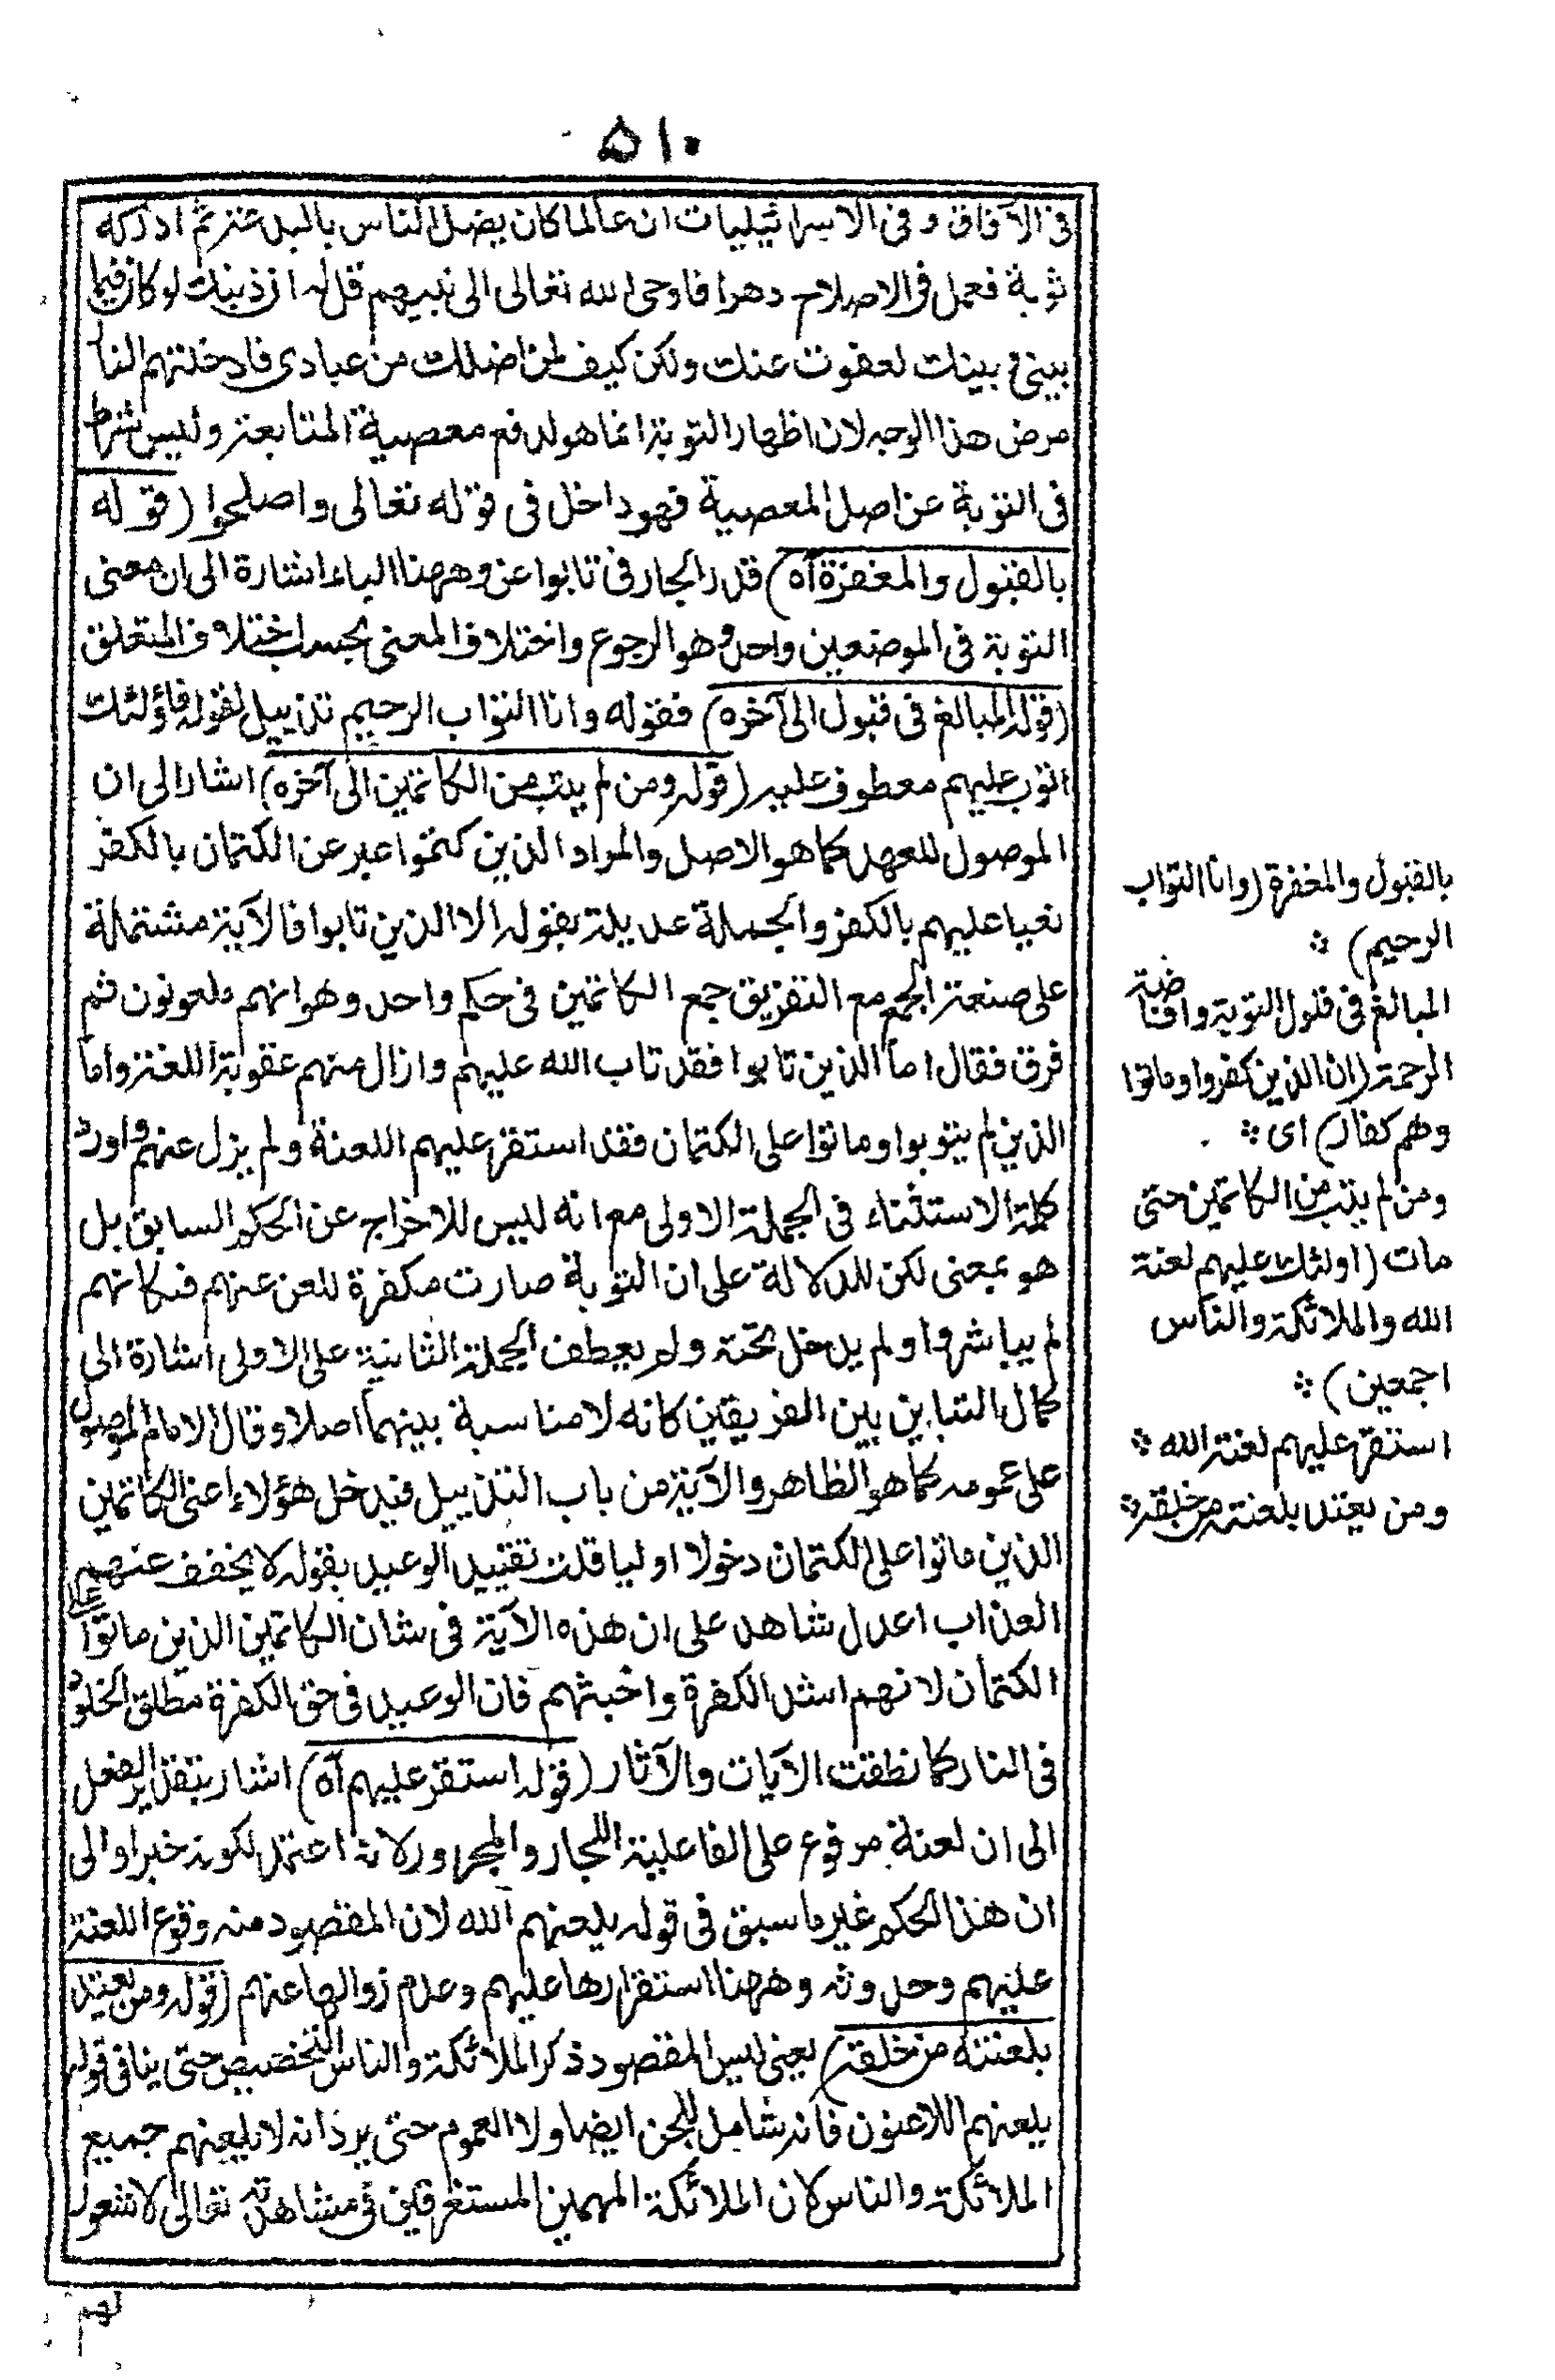 ٥١٠
فی الآفاق وفی الاسرائیلیات ان عالما كان یضل الناس بالبدعة ثم ادركه
توبة فعمل فی الاصلاح دهرا فاوحی الله تعالی الی نبیهم قل له ان ذنبك لو كان فیما
بینی و بینك لعفوت عنك ولكن كیف لمن اضللت من عبادی فادخلتهم النا
مرض هذا الوجه لان اظهار التوبة انما هو لدفع معصیة المتابعة ولیس شرط
فی التوبة عن اصل المعصیة فهو داخل فی قوله تعالی واصلحوا (قوله
بالقبول والمغفرة آه) قدر الجار فی تابوا عن وههنا الباء اشارة الی ان معنی
التوبة فی الموضعین واحد وهو الرجوع واختلاف المعنی بحسب اختلاف المتعلق
(قوله المبالغ فی قبول الی آخره) فقوله وانا التواب الرحیم تذییل لقوله فاؤلئك
اتوب علیهم معطوف علیه (قوله ومن لم یتب من الكاتمین الی آخره) اشار الی ان
الموصول للعهد كما هو الاصل والمراد الذین كتموا عبر عن الكتمان بالكفر
نعیا علیهم بالكفر والجملة عدیلة بقوله الا الذین تابوا فالآیة مشتملة
علی صنعة الجمع مع التفریق جمع الكاتمین فی حكم واحد وهو انهم ملعونون ثم
فرق فقال اما الذین تابوا فقد تاب الله علیهم وازال عنهم عقوبة اللعنة واما
الذین لم یتوبوا وماتوا علی الكتمان فقد استقر علیهم اللعنة ولم یزل عنهم واورد
كلمة الاستثناء فی الجملة الاولی مع انه لیس للاخراج عن الحكم السابق بل
هو بمعنی لكن للدلالة علی ان التوبة صارت مكفرة للعن عنهم فكانهم
لم یباشروا ولم یدخل تحته ولم یعطف الجملة الثانیة علی الاولی اشارة الی
كمال التباین بین الفریقین كانه لا مناسبة بینهما اصلا وقال الامام الموصول
علی عمومه كما هو الظاهر والآیة من باب التذییل فیدخل هؤلاء اعنی الكاتمین
الذین ماتوا علی الكتمان دخولا اولیا قلت تقیید الوعید بقوله لا یخفف عنهم
العذاب اعدل شاهد علی ان هذه الآیة فی شان الكاتمین الذین ماتوا علی
الكتمان لانهم اشد الكفرة واخبثهم فان الوعید فی حق الكفرة مطلق الخلود
فی النار كما نطقت الآیات والآثار (قوله استقر علیهم آه) اشار بتقدیر الفعل
الی ان لعنة مرفوع علی الفاعلیة اللجار والمجرور لانه اعتمد لكونه خبرا والی
ان هذا الحكم غیر ما سبق فی قوله یلعنهم الله لان المقصود منه وقوع اللعنة
علیهم وحدوثه وههنا استقرارها علیهم وعدم زوالها عنهم (قوله ومن یعتد
بلعنته من خلقه) یعنی لیس المقصود ذكر الملائكة والناس التخصیص حتی ینافی قوله
یلعنهم اللاعنون فانه شامل للجن ایضا ولا العموم حتی یرد انه لا یلعنهم جمیع
الملائكة والناس لان الملائكة المهیمین المستغرقین فی مشاهدته تعالی لا شعور
لهم
بالقبول والمغفرة (وانا التواب
الرحیم) ؞
المبالغ فی قبول التوبة وافاضة
الرحمة (ان الذین كفروا وماتوا
وهم كفار) ای ؞
ومن لم یتب من الكاتمین حتی
مات (اولئك علیهم لعنة
الله والملائكة والناس
اجمعین) ؞
استقر علیهم لعنة الله ؞
ومن یعتد بلعنته من خلقه ؞